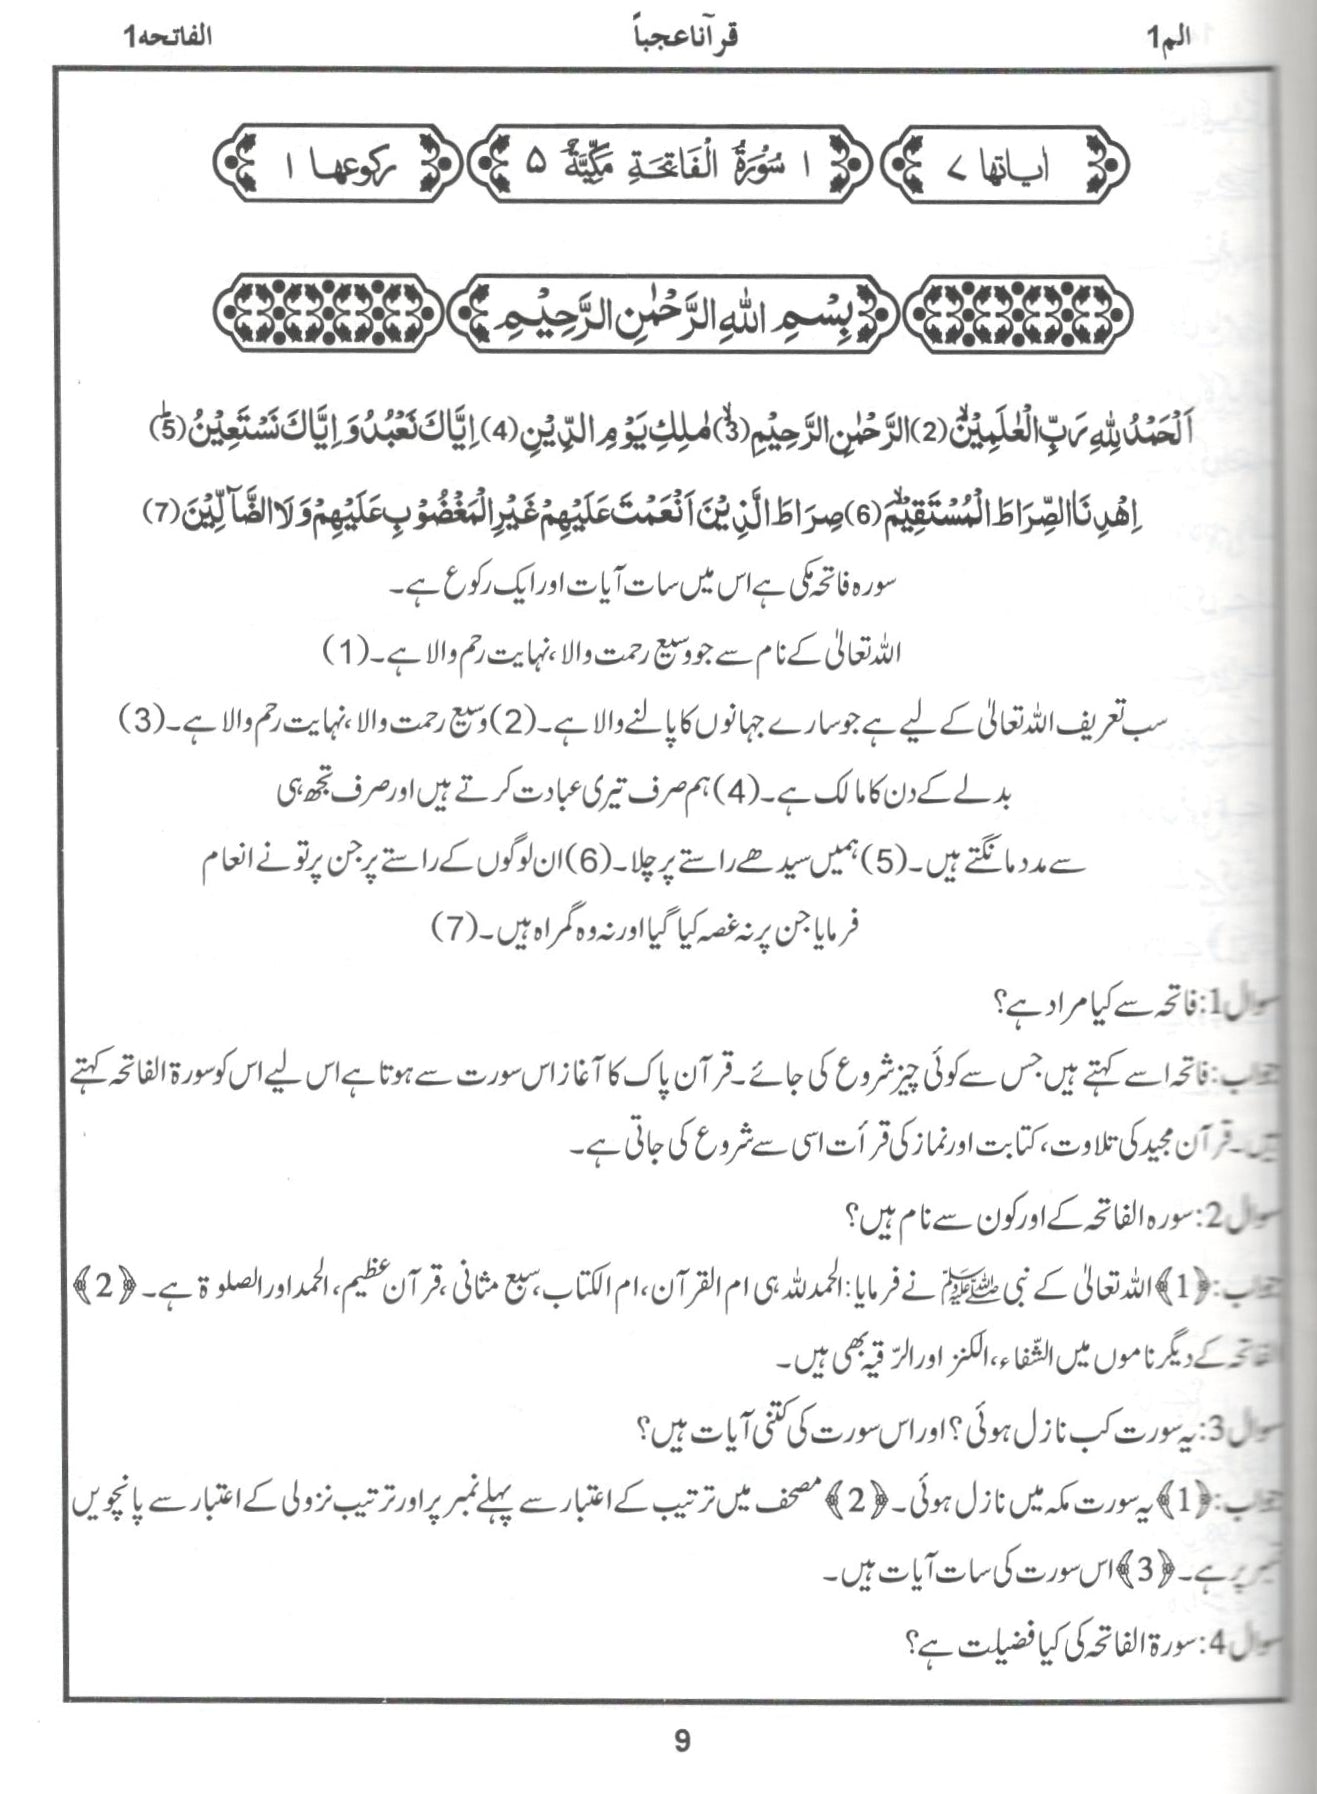 الم1
قرآناعجباً
الفاتحه1
اٰیاتہا ۷
۱ سُوْرَةُ الْفَاتِحَةِ مَكِّيَّةٌ ۵
رکوعہا ۱
بِسْمِ اللّٰهِ الرَّحْمٰنِ الرَّحِيْمِ
اَلْحَمْدُ لِلّٰهِ رَبِّ الْعٰلَمِيْنَۙ(2)الرَّحْمٰنِ الرَّحِيْمِۙ(3)مٰلِكِ يَوْمِ الدِّيْنِ(4)اِيَّاكَ نَعْبُدُ وَاِيَّاكَ نَسْتَعِيْنُؕ(5)
اِهْدِنَا الصِّرَاطَ الْمُسْتَقِيْمَۙ(6)صِرَاطَ الَّذِيْنَ اَنْعَمْتَ عَلَيْهِمْ غَيْرِ الْمَغْضُوْبِ عَلَيْهِمْ وَلَا الضَّآلِّيْنَ(7)
سورہ فاتحہ مکی ہے اس میں سات آیات اور ایک رکوع ہے۔
اللہ تعالیٰ کے نام سے جو وسیع رحمت والا، نہایت رحم والا ہے۔(1)
سب تعریف اللہ تعالیٰ کے لیے ہے جو سارے جہانوں کا پالنے والا ہے۔(2) وسیع رحمت والا، نہایت رحم والا ہے۔(3)
بدلے کے دن کا مالک ہے۔(4) ہم صرف تیری عبادت کرتے ہیں اور صرف تجھ ہی
سے مدد مانگتے ہیں۔(5) ہمیں سیدھے راستے پر چلا۔(6) ان لوگوں کے راستے پر جن پر تو نے انعام
فرمایا جن پر نہ غصہ کیا گیا اور نہ وہ گمراہ ہیں۔(7)
سوال1: فاتحہ سے کیا مراد ہے؟
جواب: فاتحہ اسے کہتے ہیں جس سے کوئی چیز شروع کی جائے۔ قرآن پاک کا آغاز اس سورت سے ہوتا ہے اس لیے اس کو سورۃ الفاتحہ کہتے
ہیں۔ قرآن مجید کی تلاوت، کتابت اور نماز کی قرأت اسی سے شروع کی جاتی ہے۔
سوال2: سورہ الفاتحہ کے اور کون سے نام ہیں؟
جواب: ﴿1﴾ اللہ تعالیٰ کے نبی ﷺ نے فرمایا: الحمدللہ ہی ام القرآن، ام الکتاب، سبع مثانی، قرآن عظیم، الحمد اور الصلوۃ ہے۔ ﴿2﴾
الفاتحہ کے دیگر ناموں میں الشّفاء، الکنز اور الرّقیہ بھی ہیں۔
سوال3: یہ سورت کب نازل ہوئی؟ اور اس سورت کی کتنی آیات ہیں؟
جواب: ﴿1﴾ یہ سورت مکہ میں نازل ہوئی۔ ﴿2﴾ مصحف میں ترتیب کے اعتبار سے پہلے نمبر پر اور ترتیب نزولی کے اعتبار سے پانچویں
نمبر پر ہے۔ ﴿3﴾ اس سورت کی سات آیات ہیں۔
سوال4: سورۃ الفاتحہ کی کیا فضیلت ہے؟
9